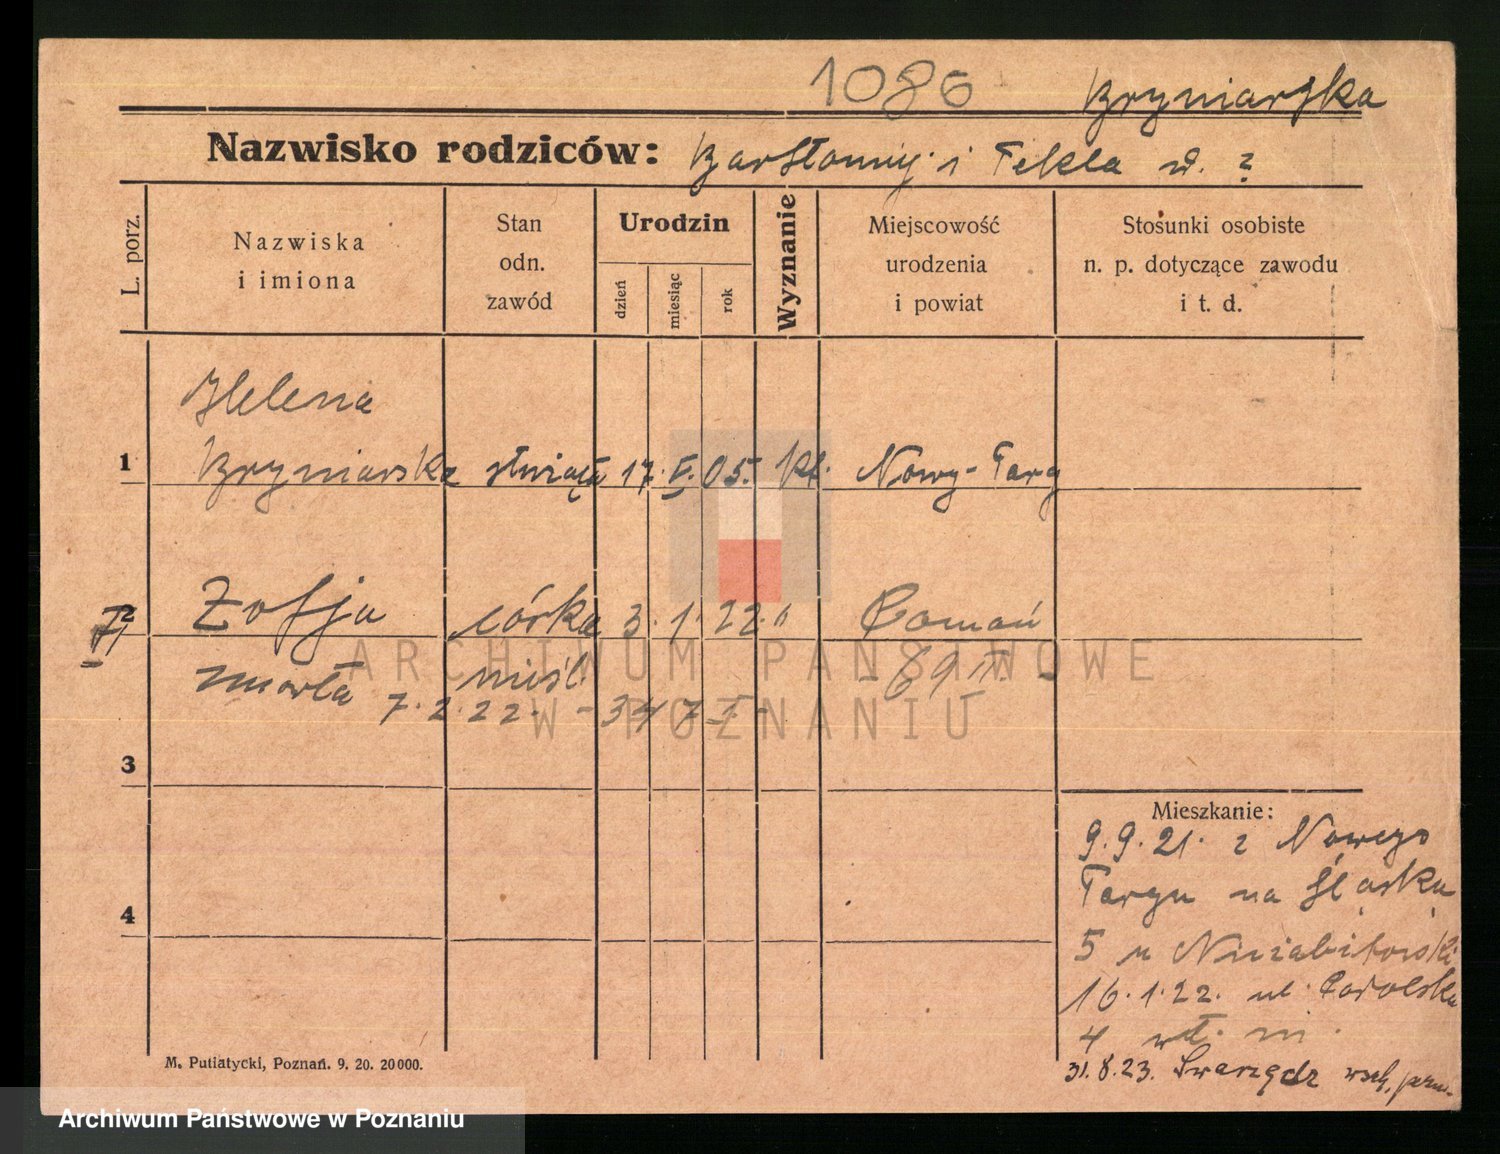 1086 Bryniarska
Nazwisko rodziców: Bartłomiej i Tekla d. ?
L. porz.
Nazwiska
i imiona
Stan
odn.
zawód
Urodzin
dzień
miesiąc
rok
Wyznanie
Miejscowość
urodzenia
i powiat
Stosunki osobiste
n. p. dotyczące zawodu
i t. d.
Helena
1 Bryniarska służąca 17. V. 05. kt. Nowy-Targ
2 Zofja córka 3. 1. 22. " Poznań
zmarła nieśl.
7. 2. 22.
3
Mieszkanie:
9. 9. 21. z Nowego
Targu na Śląską
4
5 u
16. 1. 22. ul.
4 wł. m.
31. 8. 23. Swarzędz wsch.
M. Putiatycki, Poznań. 9. 20. 20000.
ARCHIWUM PAŃSTWOWE
W POZNANIU
Archiwum Państwowe w Poznaniu